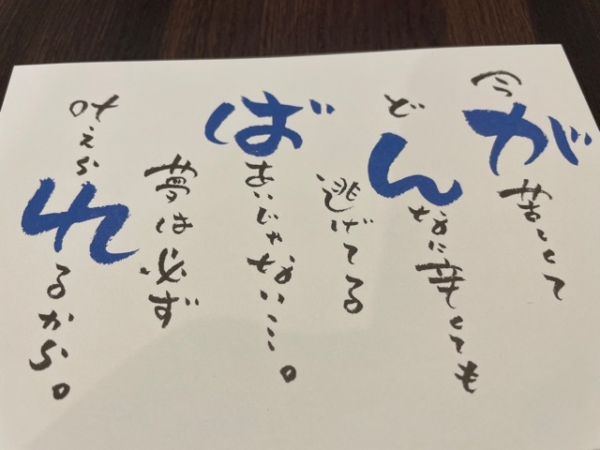 今が苦しくて
どんなに辛くても
逃げてる
ばあいじゃない…。
夢は必ず
叶えられるから。